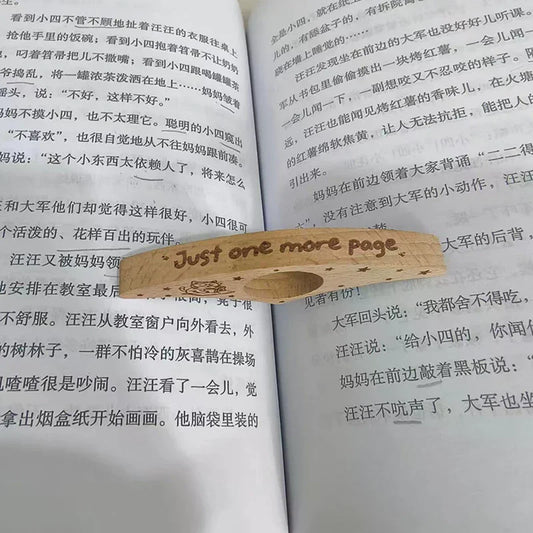 看到小四不管不顾地扯着汪汪的衣服往桌上
抢他手里的饭碗；看到小四抱着笤帚不让奶奶
，叼着笤帚把儿不撒嘴；看到小四跟喝罐罐茶
爷捣乱，将一罐浓茶泼洒在地上……妈妈皱着
摇头，说：“不好，这样不好。”
妈妈不摸小四，也不太理它。聪明的小四窥出
“不喜欢”，也很自觉地从不往妈妈跟前凑。
妈说：“这个小东西太依赖人了，将来怎么
和大军他们却觉得这样很好，小四很可
个活泼的、花样百出的玩伴。
汪汪又被妈妈领
地安排在教室最后
不舒服。汪汪从教室窗户向外看去，外
的树林子，一群不怕冷的灰喜鹊在操场
叽喳喳很是吵闹。汪汪看了一会儿，觉
拿出烟盒纸开始画画。他脑袋里装的
Just one more page
儿的，有舔盆子的，有拆院
墙上睡觉的……也没好好儿听课。
汪汪发现坐在前边的大军
军从书包里偷偷摸出一块烤红薯，一会儿闻一下，
会儿闻一下，一副想咬又不忍咬的样子。
远，汪汪也能闻见烤红薯的香味儿，在火塘
的红薯绵软焦黄，让人无法抗拒，能把人的
引出来。
妈妈在前边领着大家背诵“二二得
，没有注意到大军的小动作，汪汪
大军的后背，
见者有份！
大军回头说：“我都舍不得吃，
汪汪说：“给小四的，你闻
妈妈在前边敲着黑板说：“
汪汪不吭声了，大军也坐